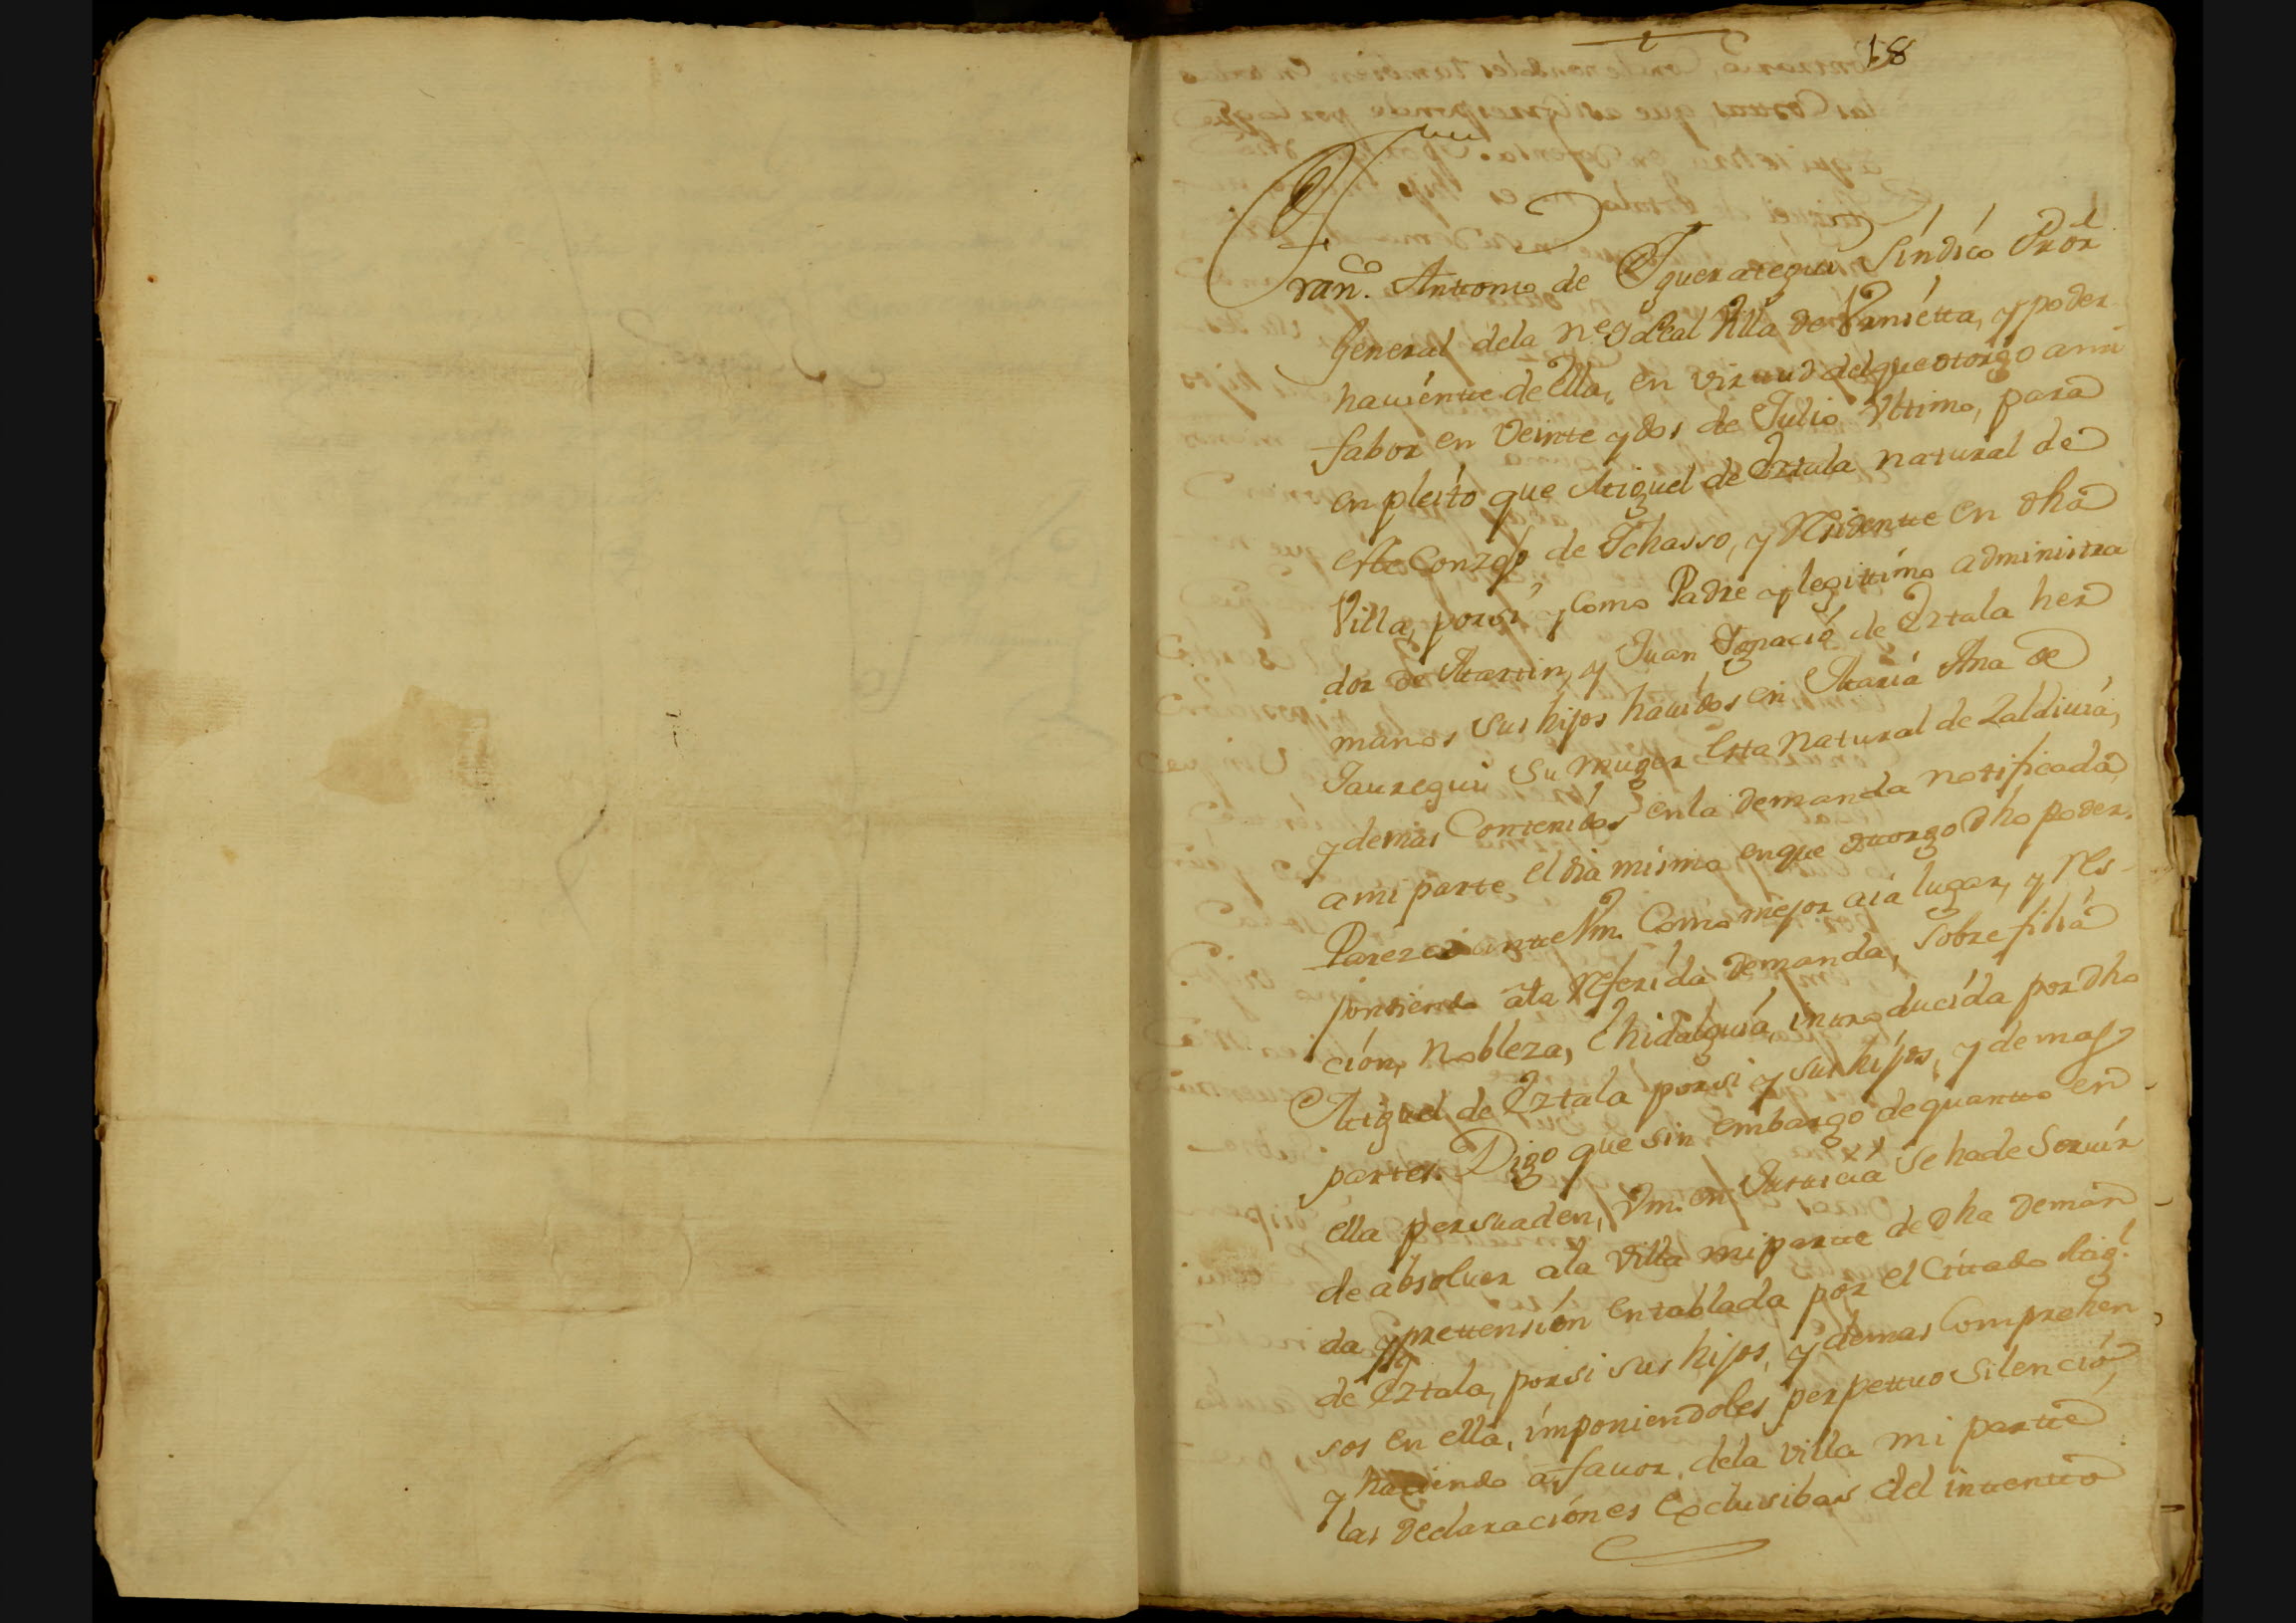 18
Fran.co Antonio de Yguerategui Síndico Pror
General dela n. y Leal Villa de Urnietta, y poder
hauiente de ella, en virtud del que otorgo a mi
fabor en Veinte y dos de Julio Vltimo, para
en pleito que Miguel de Eztala natural de
este Conzejo de Ichasso, y Residentte en dha
Villa, porsi, y Como Padre y legittimo administra
dor de Martin, y Juan Ignacio de Eztala her
manos sus hijos hauidos en Maria Ana de
Jauregui su muger Esta Natural de Zaldiuia,
y demas Contenidos en la demanda notificada
a mi parte el dia mismo en que otorgo dho poder.
Parezco antte Vm. Como mejor aia lugar, y Res-
pondiendo a la Referida demanda, sobre filia
ción, Nobleza, e hidalguia, introducida por dho
Miguel de Eztala porsi y sus hijos, y demas
partes. Digo que sin embargo de quantto en
ella persuaden, Vm. en Justicia se ha de Seruir
de absoluer ala Villa mi partte de dha deman
da y prettensión entablada por el Cittado Mig.l
de Eztala, porsi sus hijos, y demas Comprehen
sos en ella, imponiendoles perpettuo silenció,
y haciendo a fauor dela Villa mi partte
las declaraciónes Exclusibas del intentto